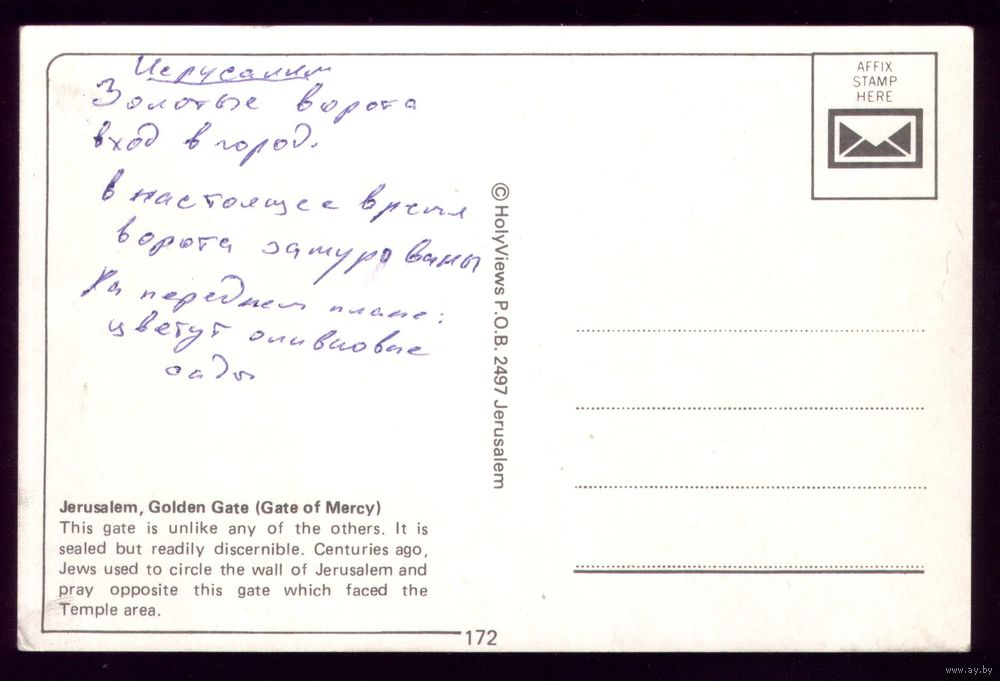 Иерусалим
Золотые ворота
вход в город.
в настоящее время
ворота замурованы
На переднем плане:
цветут оливковые
сады
Jerusalem, Golden Gate (Gate of Mercy)
This gate is unlike any of the others. It is
sealed but readily discernible. Centuries ago,
Jews used to circle the wall of Jerusalem and
pray opposite this gate which faced the
Temple area.
172
© HolyViews P.O.B. 2497 Jerusalem
AFFIX
STAMP
HERE
www.ay.by